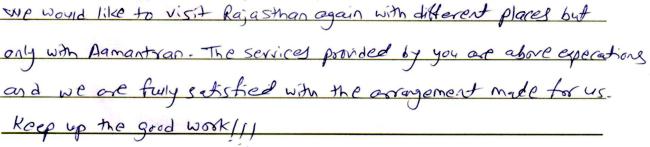 we would like to visit Rajasthan again with different places but
only with Aamantran. The services provided by you are above expecations
and we are fully satisfied with the arrangement made for us.
Keep up the good work!!!